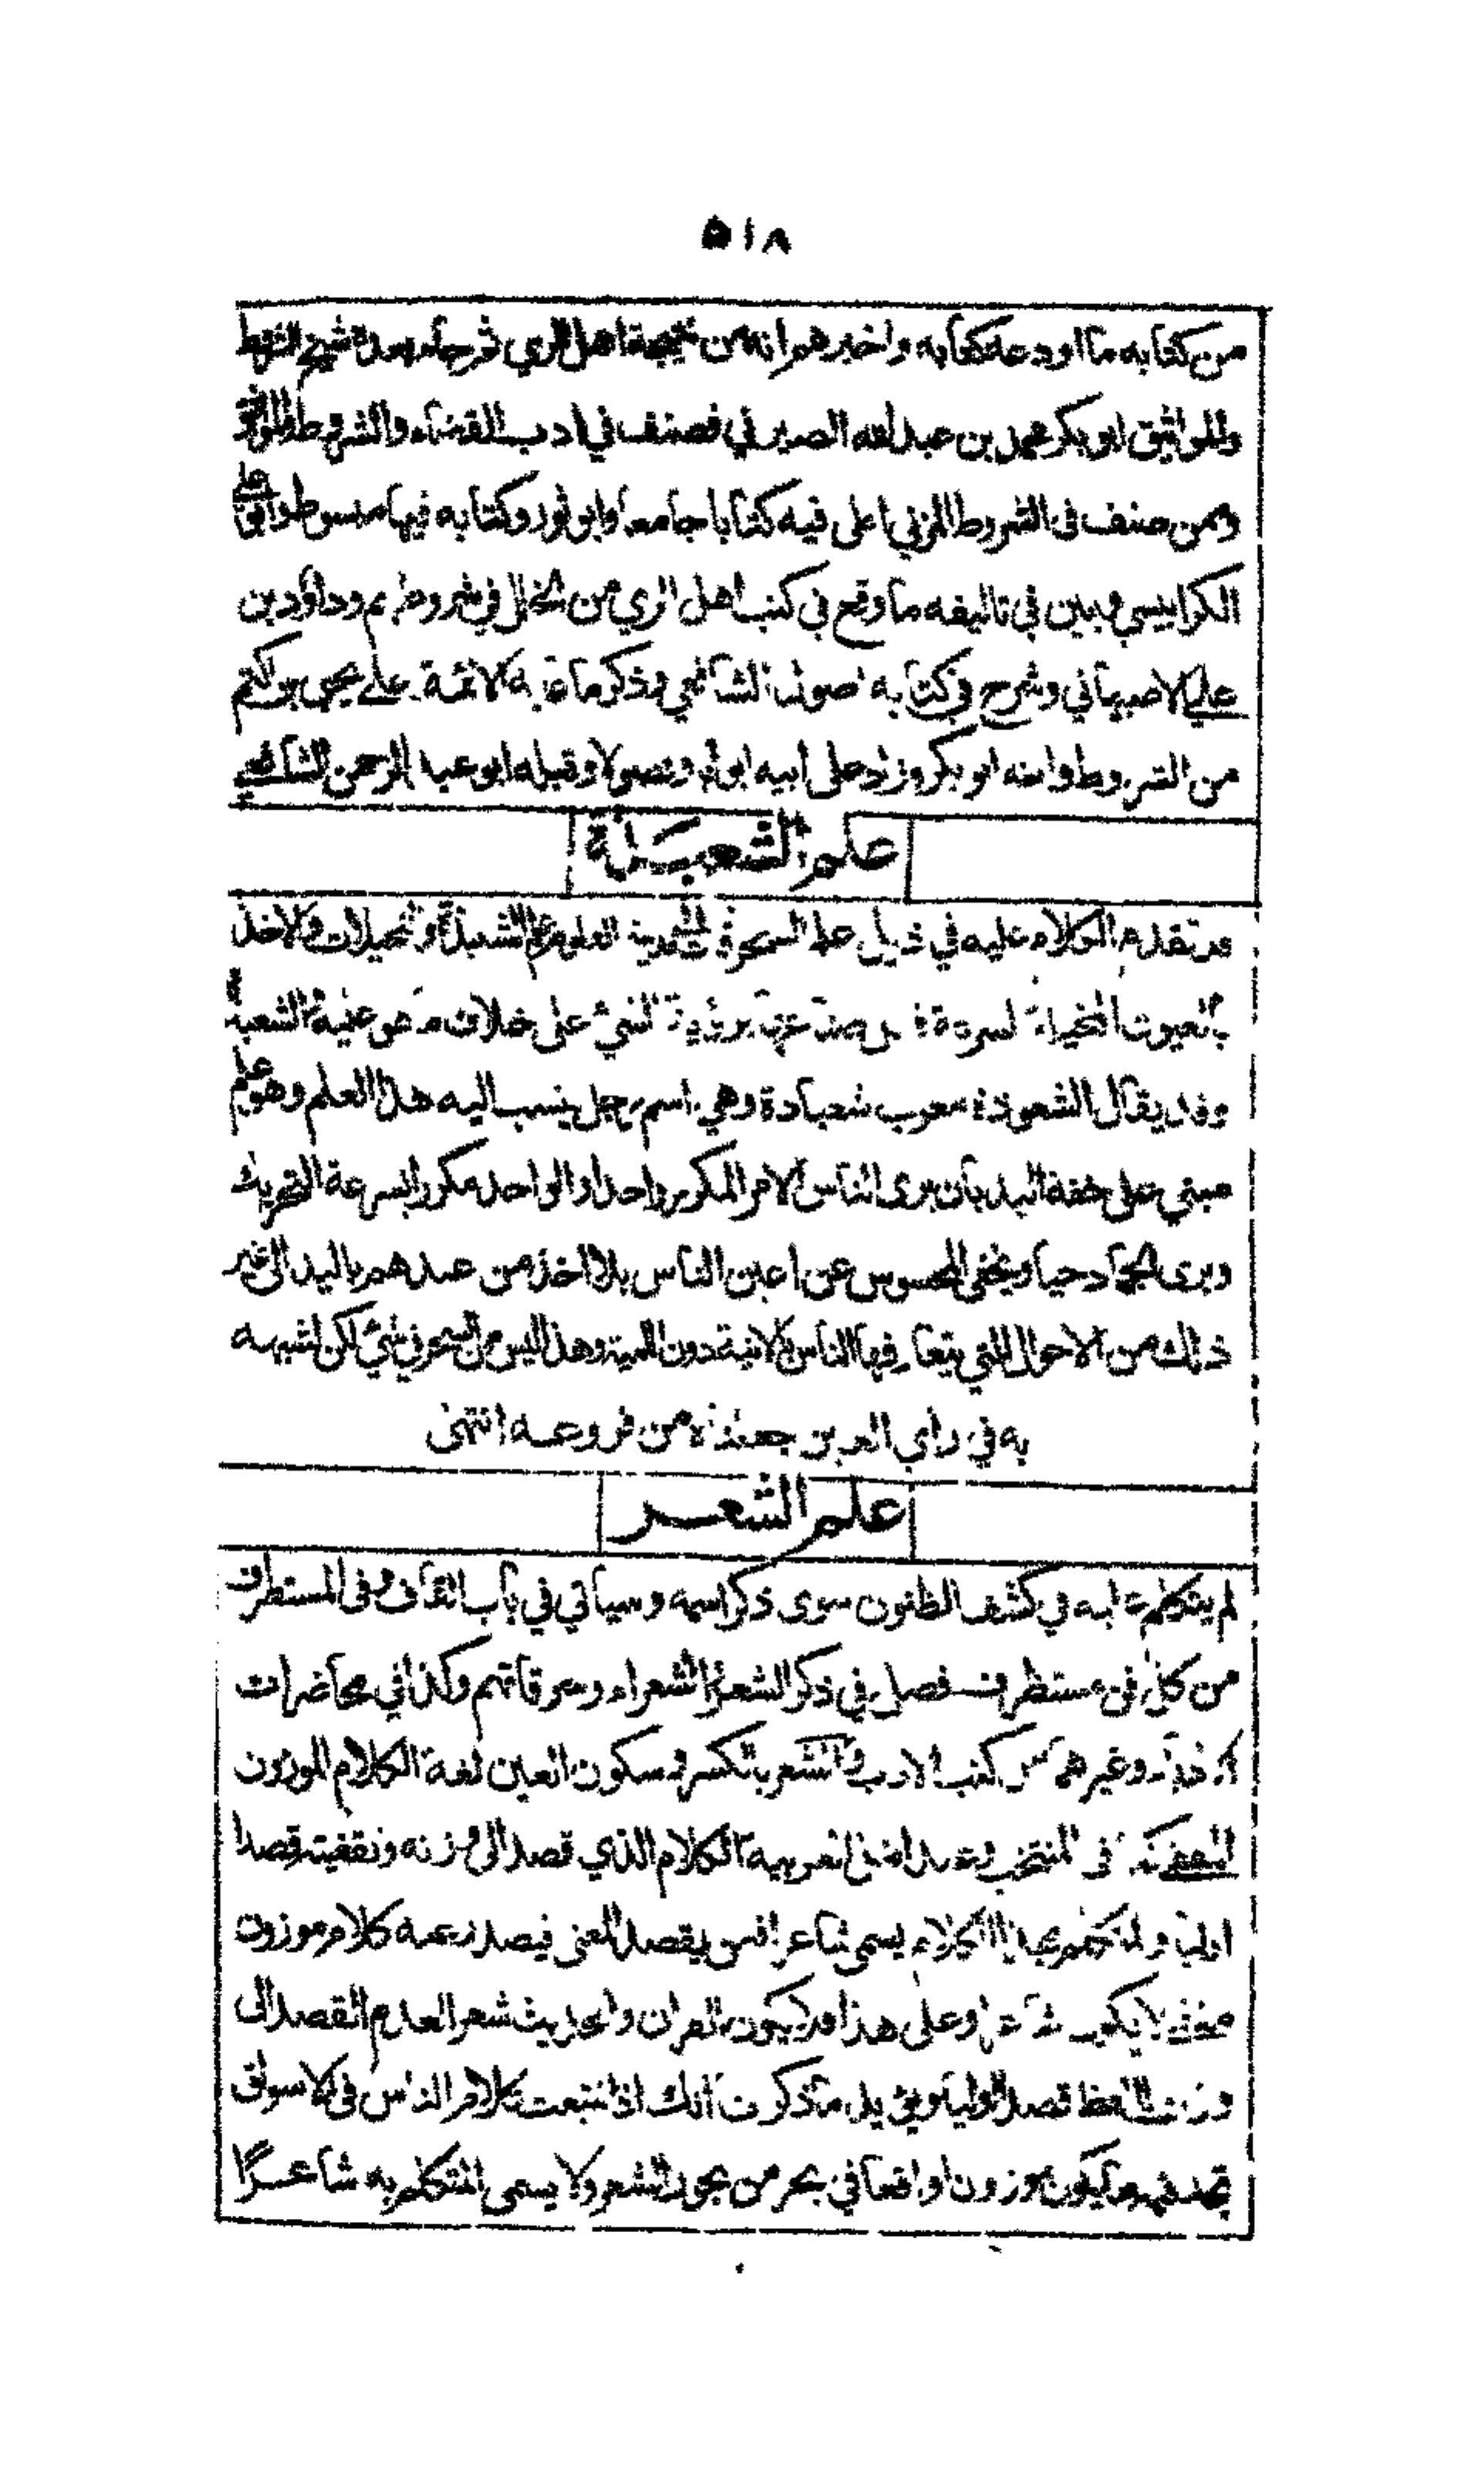 ٥١٨
من كتابه ما اودعه كتابه واخبرهم انه من نتيجة اهل الري ثم جاء بعده شيخ الشروط
والمواثيق ابو بكر محمد بن عبد الله الصيرفي فصنف في ادب القضاء والشروط والمواثيق
وممن صنف في الشروط المزني املى فيه كتابا جامعا وابو ثور وكتابه فيها مبسوط وابو علي
الكرابيسي وبين في تاليفه ما وقع في كتب اهل الري من الخلل في شروطهم وداؤد بن
علي الاصبهاني وشرح في كتابه اصول الشافعي وذكر ما عابه الائمة على يحيى بن اكثم
من الشروط وابنه ابو بكر وزاد على ابيه ابوابا وفصولا وقبله ابو عبد الرحمن الشافعي
علم الشعبذة
قد تقدم الكلام عليه في ذيل علم السحر في مدينة العلوم علم الشعبذة والتخيلات والاخذ
بالعيون برؤية الشيء على خلاف ما هو عليه الشعبذة
وقد يقال الشعوذة معرب شعبادة وهي اسم رجل ينسب اليه هذا العلم وهو علم
مبني على خفة اليد بان يرى الناس الامر المكرر واحدا والواحد مكررا بسرعة التحريك
ويرى الجماد حيا ويخفى المحسوس عن اعين الناس بلا اخذ من عندهم باليد الى غير
ذلك من الاحوال التي يتعارفها الناس الانية دون اللمية وهذا ليس من السحر في شيء لكن لشبهه
به في رأي العين جعلناه من فروعه انتهى
علم الشعر
لم يتكلم عليه في كشف الظنون سوى ذكر اسمه وسياتي في باب القاف وفي المستطرف
من كل فن مستظرف فصل في ذكر الشعر والشعراء وسرقاتهم وكذا في محاضرات
وغيرهما من كتب الادب والشعر بالكسر وسكون العين لغة الكلام الموزون
المقفى كما في المنتخب وعند اهل العربية الكلام الذي قصد الى وزنه وتقفيته قصدا
اوليا والمتكلم بهذا الكلام يسمى شاعرا فمن يقصد المعنى فيصدر عنه كلام موزون
مقفى لا يكون شاعرا وعلى هذا فلا يكون القران والحديث شعرا لعدم القصد الى
وزن اللفظ قصدا اوليا ويؤيد ما ذكرنا انك اذا تتبعت كلام الناس في الاسواق
تجد فيه ما يكون موزونا واقعا في بحر من بحور الشعر ولا يسمى المتكلم به شاعرًا